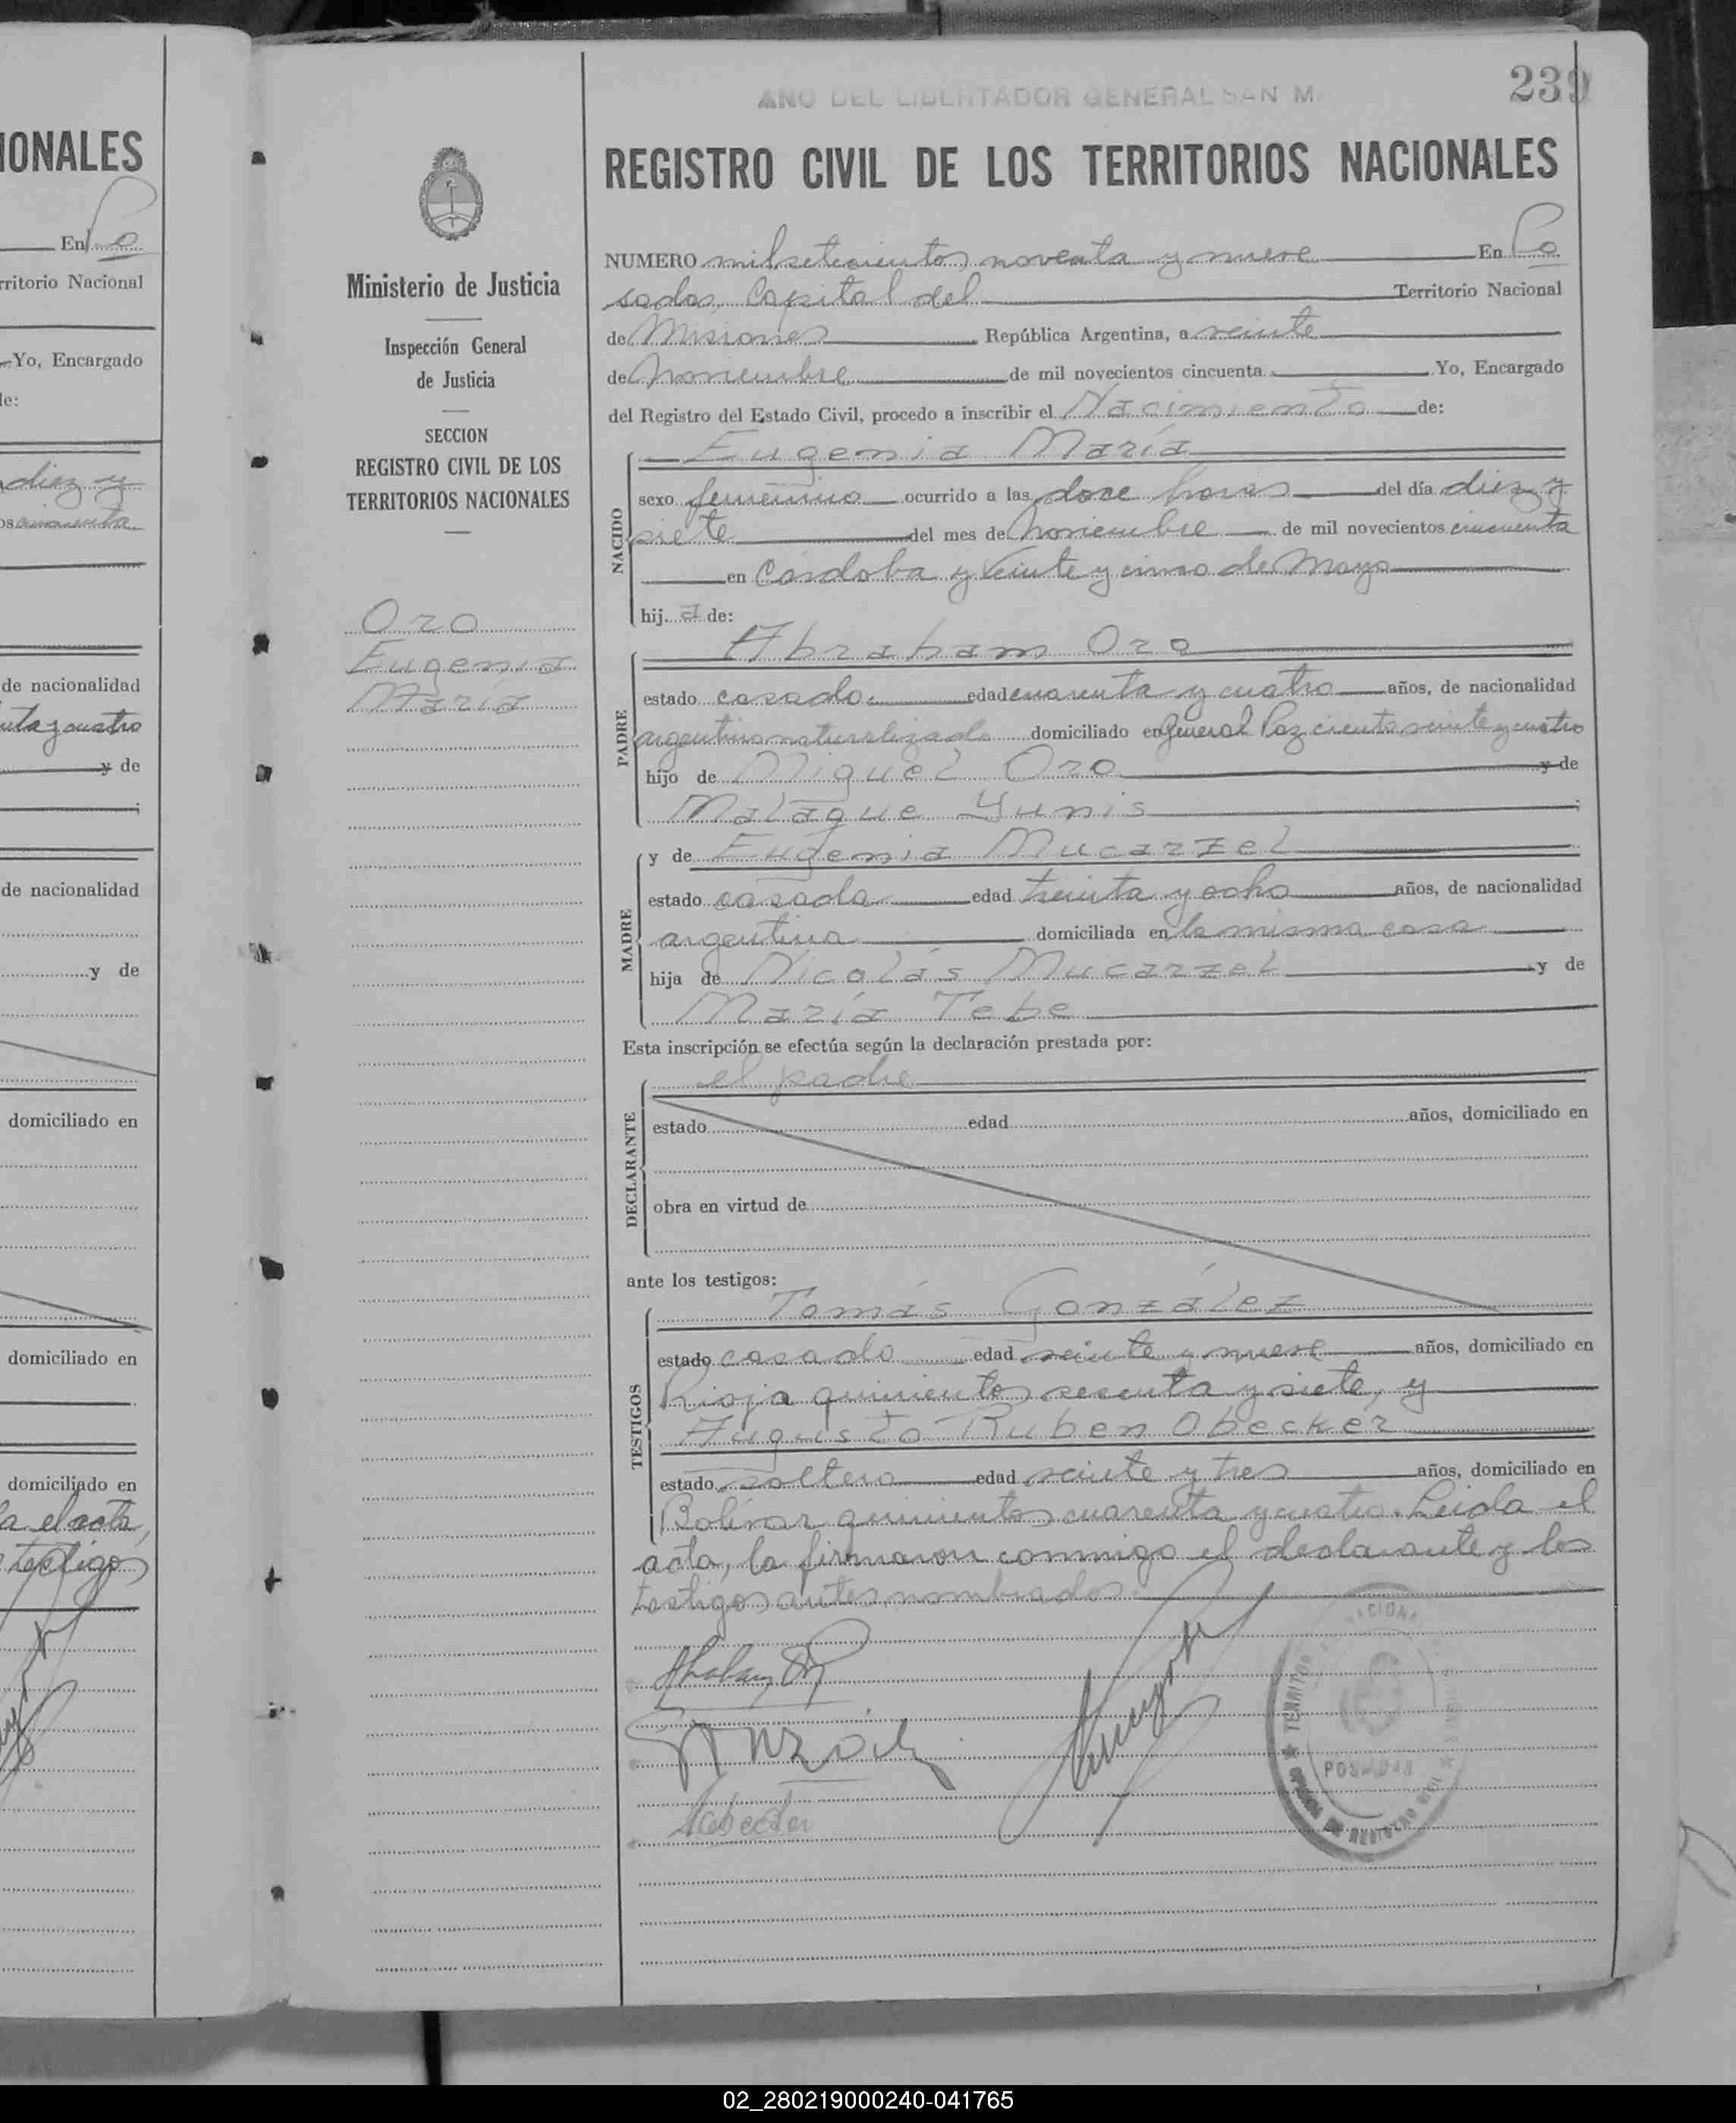 IONALES
En Po
rritorio Nacional
Yo, Encargado
le:
diez y
cincuenta
de nacionalidad
y cuatro
y de
de nacionalidad
y de
domiciliado en
domiciliado en
domiciliado en
a el acta,
testigos
AÑO DEL LIBERTADOR GENERAL SAN M
239
REGISTRO CIVIL DE LOS TERRITORIOS NACIONALES
Ministerio de Justicia
Inspección General
de Justicia
SECCION
REGISTRO CIVIL DE LOS
TERRITORIOS NACIONALES
Oro
Eugenia
María
NUMERO mil setecientos noventa y nueve En Po
sadas, Capital del Territorio Nacional
de Misiones República Argentina, a veinte
de Noviembre de mil novecientos cincuenta Yo, Encargado
del Registro del Estado Civil, procedo a inscribir el Nacimiento de:
NACIDO
Eugenia María
sexo femenino ocurrido a las doce horas del día diez y
siete del mes de Noviembre de mil novecientos cincuenta
en Córdoba y Veinte y cinco de Mayo
hij a de:
PADRE
Abraham Oro
estado casado edad cuarenta y cuatro años, de nacionalidad
argentino naturalizado domiciliado en General Paz ciento veinte y cuatro
hijo de Miguel Oro y de
Malaque Yunis
MADRE
y de Eugenia Mucarzel
estado casada edad treinta y ocho años, de nacionalidad
argentina domiciliada en la misma casa
hija de Nicolás Mucarzel y de
María Tebe
Esta inscripción se efectúa según la declaración prestada por:
DECLARANTE
el padre
estado edad años, domiciliado en
obra en virtud de
ante los testigos:
TESTIGOS
Tomás González
estado casado edad veinte y nueve años, domiciliado en
Rioja quinientos sesenta y siete, y
Augusto Ruben Obecker
estado soltero edad veinte y tres años, domiciliado en
Bolívar quinientos cuarenta y cuatro. Leida el
acta, la firmaron conmigo el declarante y los
testigos antes nombrados.
POSADAS
02_280219000240-041765